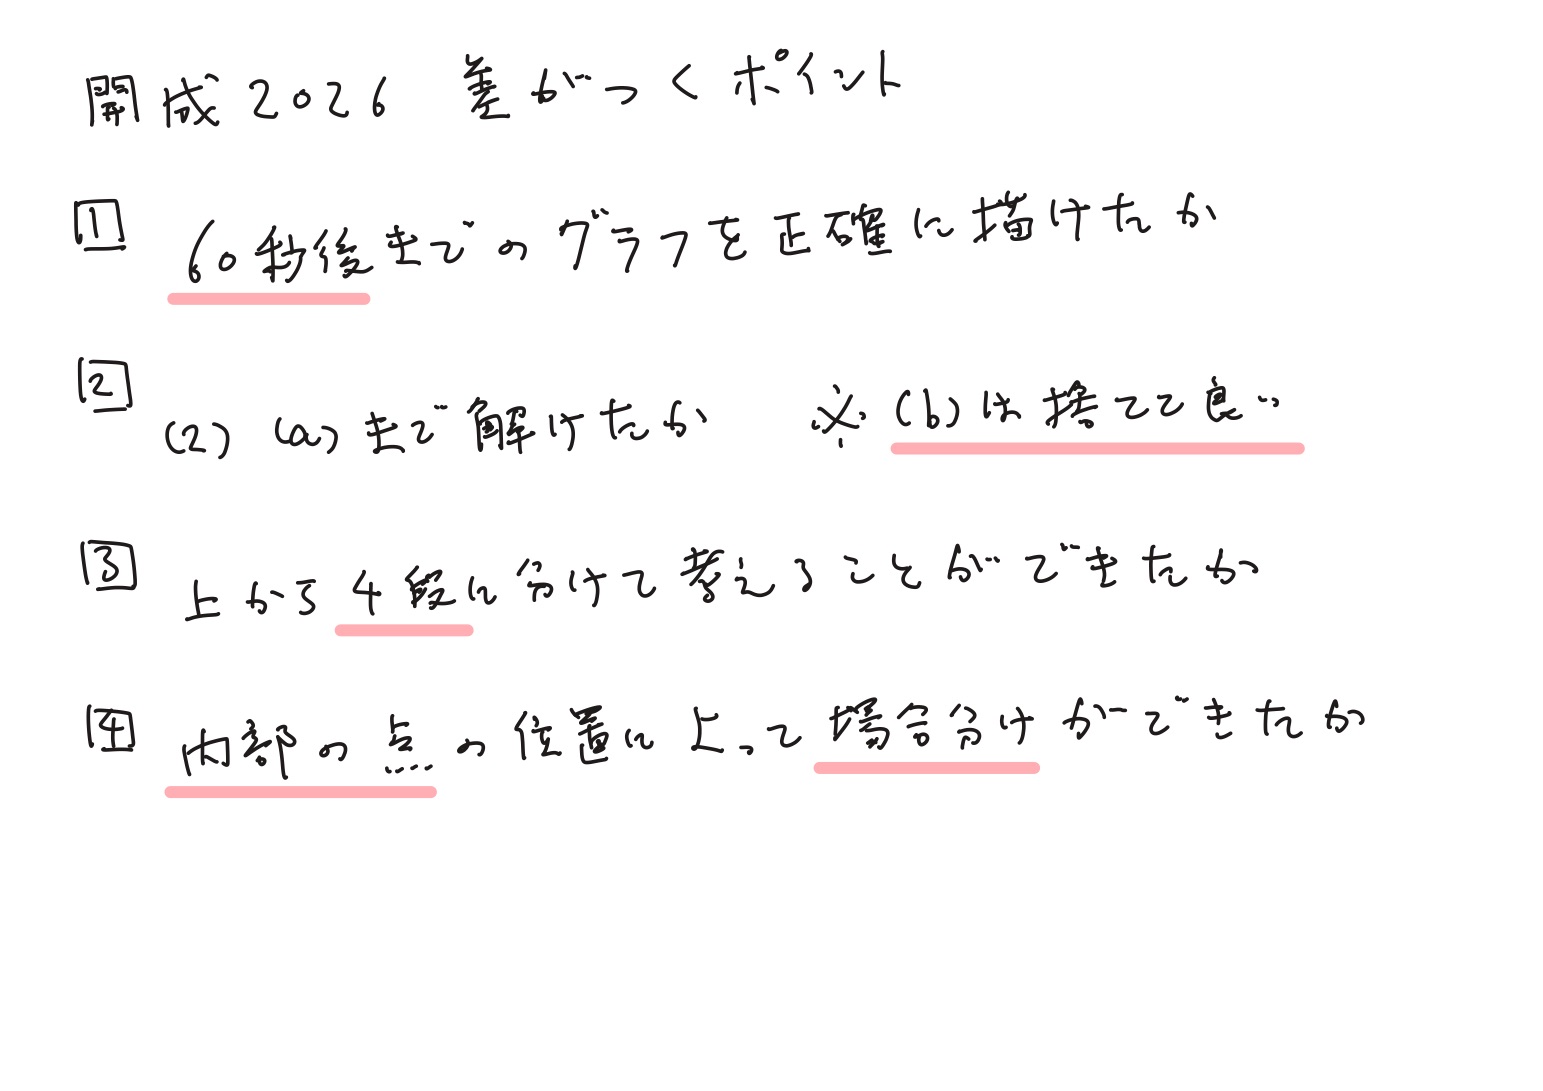 開成2026 差がつくポイント
1 60秒後までのグラフを正確に描けたか
2 (2) (a)まで解けたか ※(b)は捨てて良い
3 上から4段に分けて考えることができたか
4 内部の点の位置によって場合分けができたか